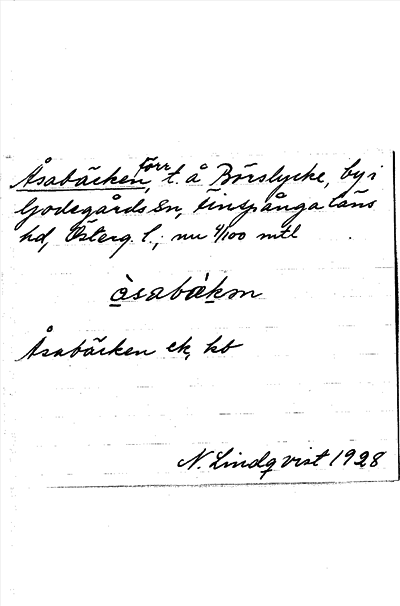 Åsabäcken, torr t. å Börslycke, by i
Godegårds sn, Finspånga läns
hd, Österg. l.; nu 4/100 mtl
åsabäkən
Åsabäcken ek, kb
N. Lindqvist 1928